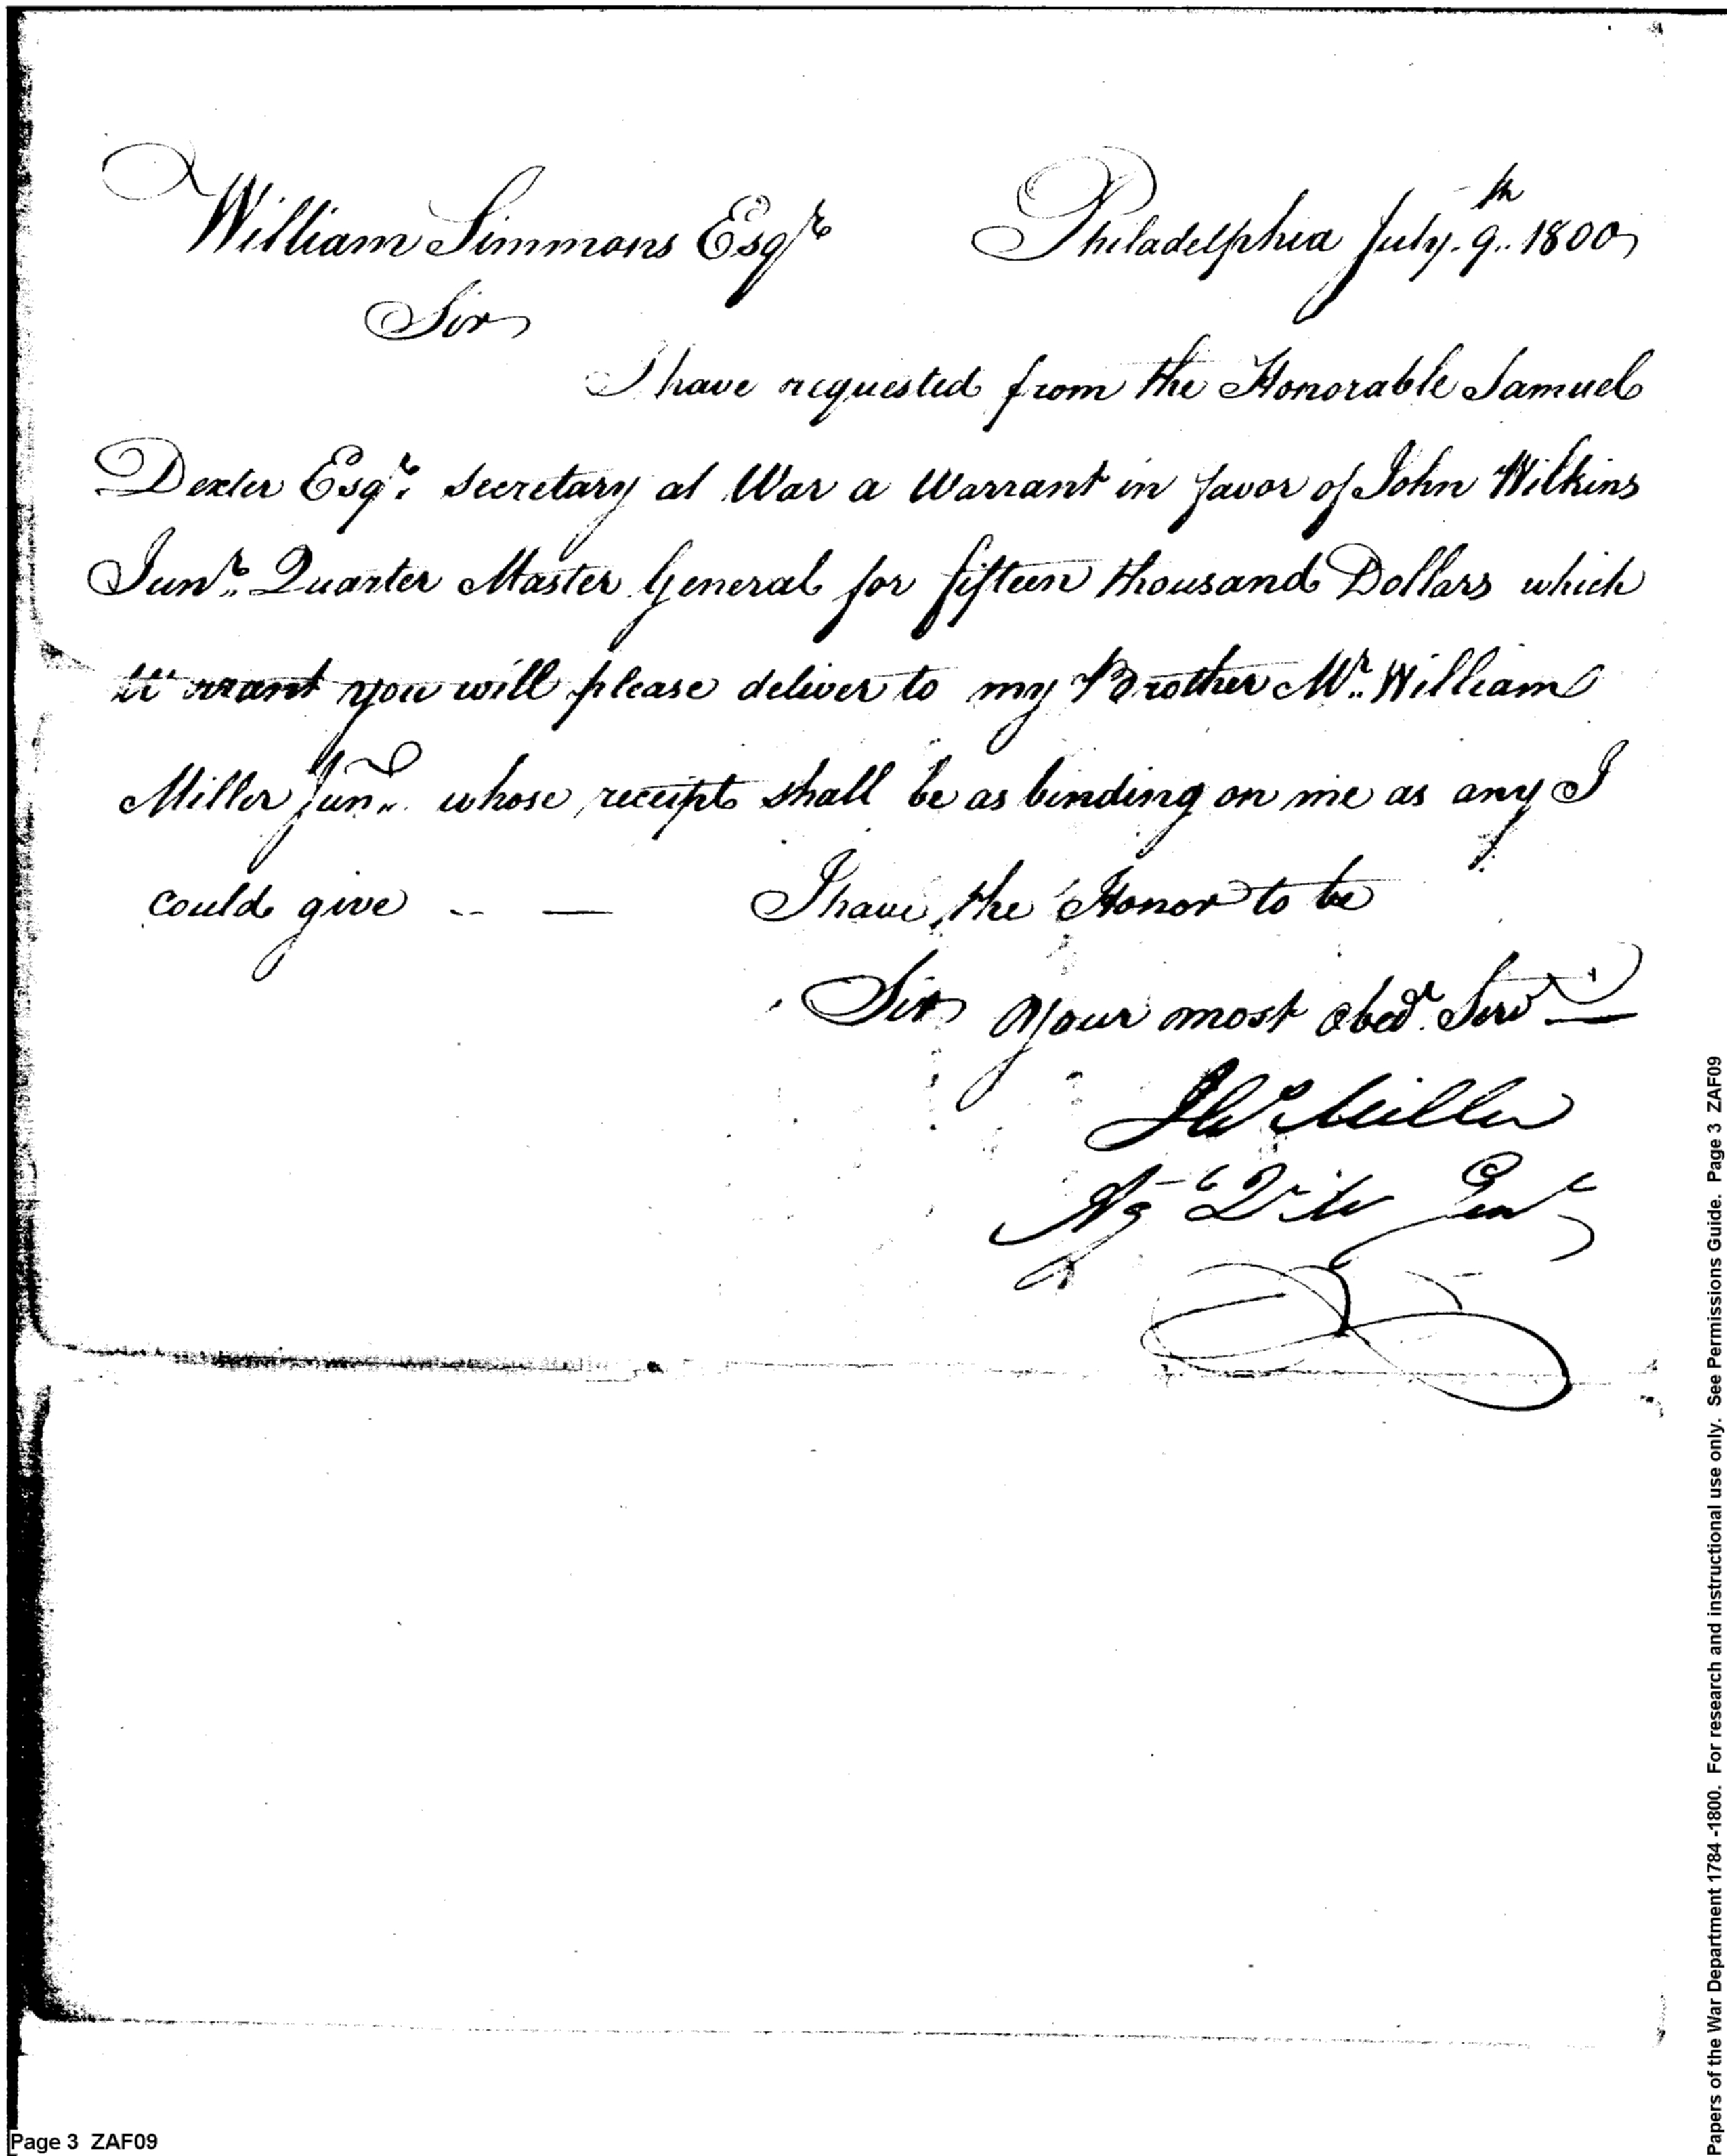 William Simmons Esqr Philadelphia July. 9th. 1800
Sir
I have requested from the Honorable Samuel
Dexter Esqr. Secretary at War a Warrant in favor of John Wilkins
Junr. Quarter Master General for fifteen thousand Dollars which
Warrant you will please deliver to my Brother Mr. William
Miller Junr. whose receipt shall be as binding on me as any I
could give -- — I have the Honor to be
Sir your most obedt. Servt —
Miller
Qr Mr Genl
Page 3 ZAF09
Papers of the War Department 1784 -1800. For research and instructional use only. See Permissions Guide. Page 3 ZAF09